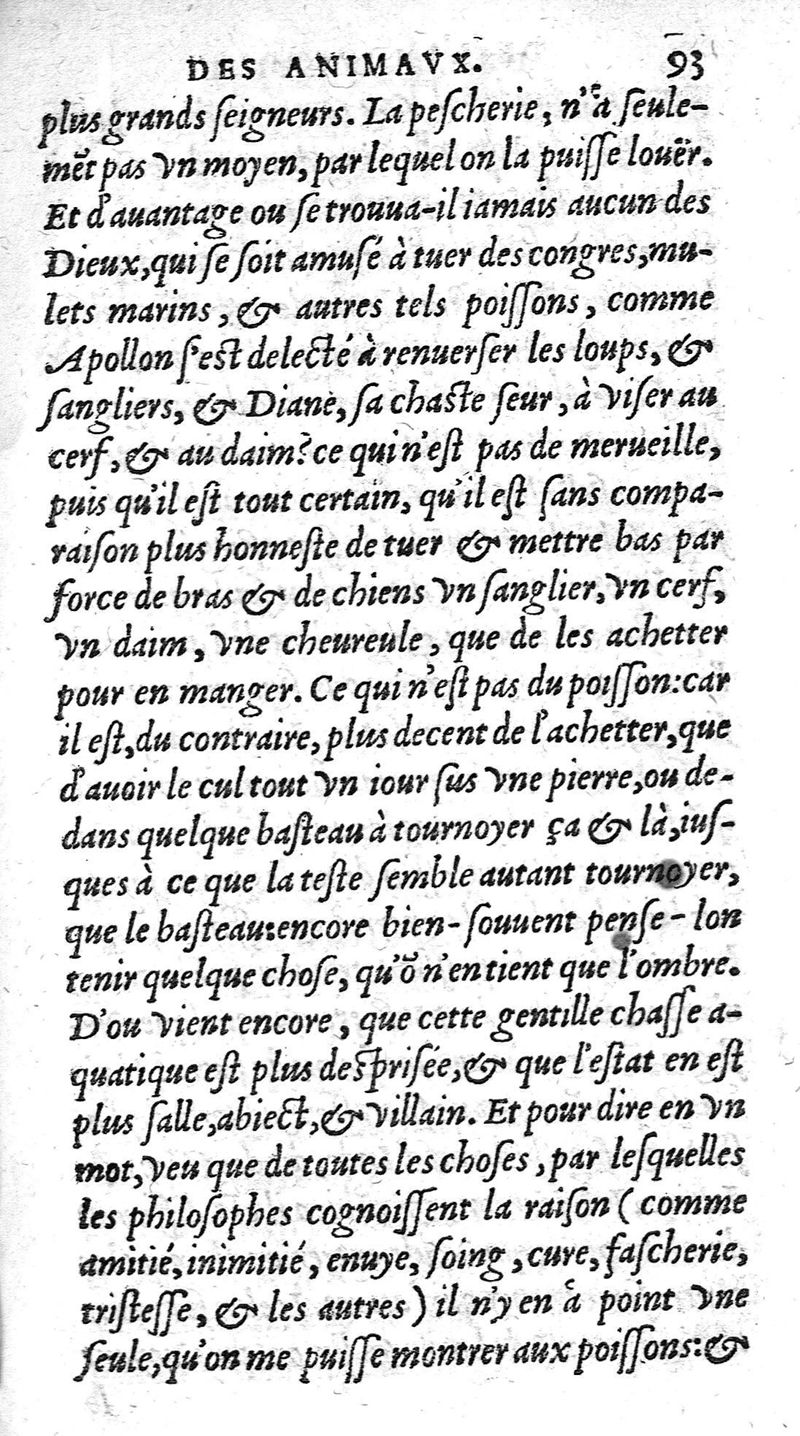 DES ANIMAVX. 93
plus grands ſeigneurs. La peſcherie, n'å ſeule-
mēt pas vn moyen, par lequel on la puiſſe louër.
Et d'auantage ou ſe trouua-il iamais aucun des
Dieux, qui ſe ſoit amuſé à tuer des congres, mu-
lets marins, & autres tels poiſſons, comme
Apollon ſ'eſt delecté à renuerſer les loups, &
ſangliers, & Diane, ſa chaſte ſeur, à viſer au
cerf, & au daim? ce qui n'eſt pas de merueille,
puis qu'il eſt tout certain, qu'il eſt ſans compa-
raiſon plus honneſte de tuer & mettre bas par
force de bras & de chiens vn ſanglier, vn cerf,
vn daim, vne cheureule, que de les achetter
pour en manger. Ce qui n'eſt pas du poiſſon: car
il eſt, du contraire, plus decent de l'achetter, que
d'auoir le cul tout vn iour ſus vne pierre, ou de-
dans quelque baſteau à tournoyer ça & là, iuſ-
ques à ce que la teſte ſemble autant tournoyer,
que le baſteau: encore bien-ſouuent penſe-lon
tenir quelque choſe, qu'ō n'en tient que l'ombre.
D'ou vient encore, que cette gentille chaſſe a-
quatique eſt plus deſpriſée, & que l'eſtat en eſt
plus ſalle, abiect, & villain. Et pour dire en vn
mot, veu que de toutes les choſes, par leſquelles
les philoſophes cognoiſſent la raiſon (comme
amitié, inimitié, enuye, ſoing, cure, faſcherie,
triſteſſe, & les autres) il n'y en å point vne
ſeule, qu'on me puiſſe montrer aux poiſſons: &